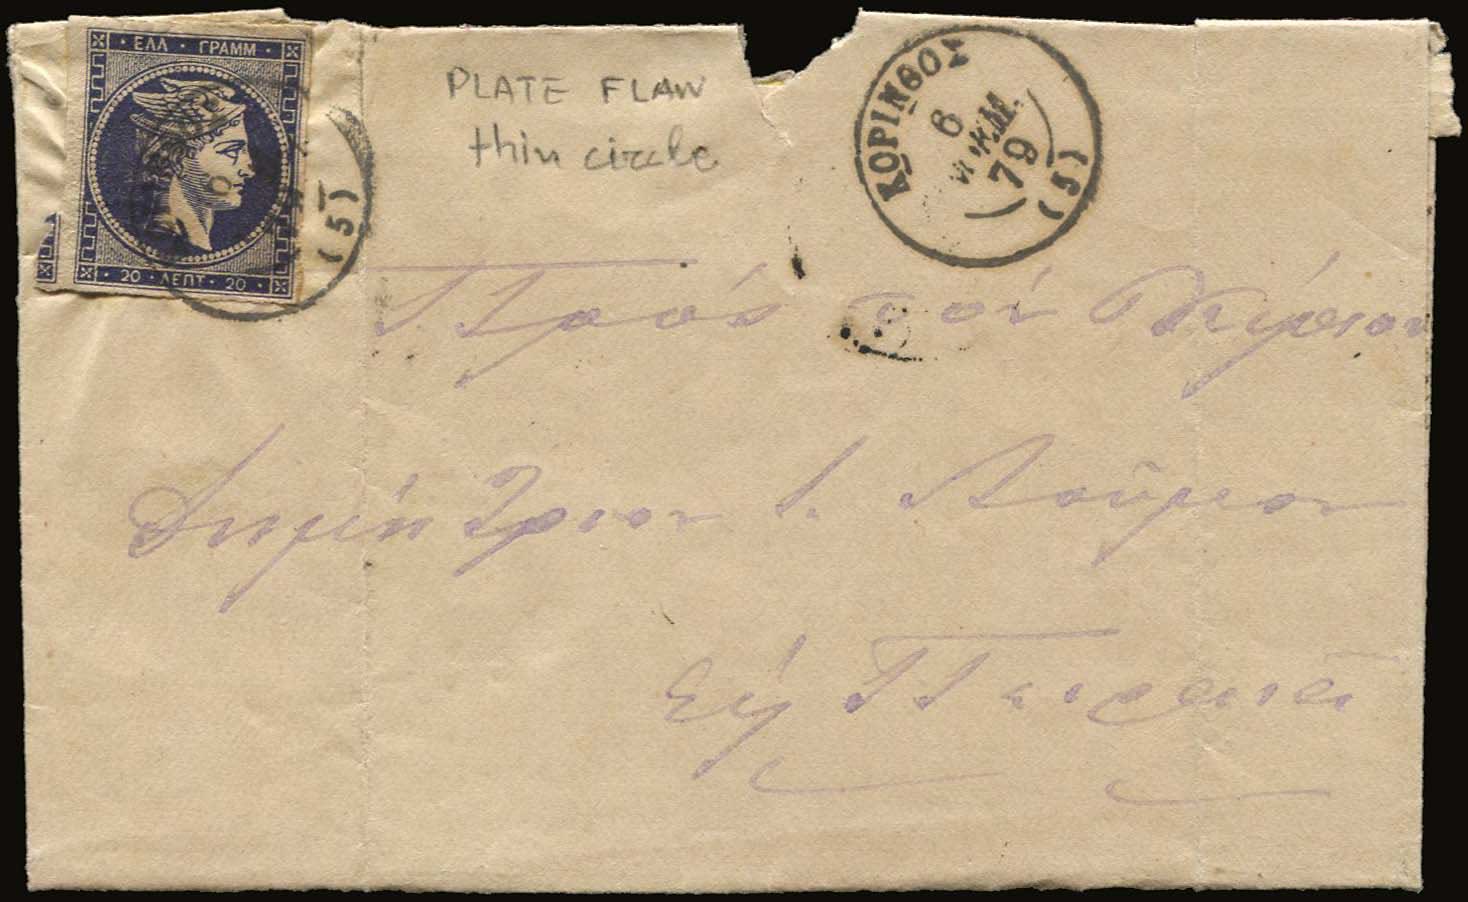 ΕΛΛ · ΓΡΑΜΜ
20 · ΛΕΠΤ · 20
(5)
PLATE FLAW
thin circle
ΚΟΡΙΝΘΟΣ
6
79
(5)
Πρὸς τὸν Κύριον
Δημήτριον
Εἰς Πειραιᾶ